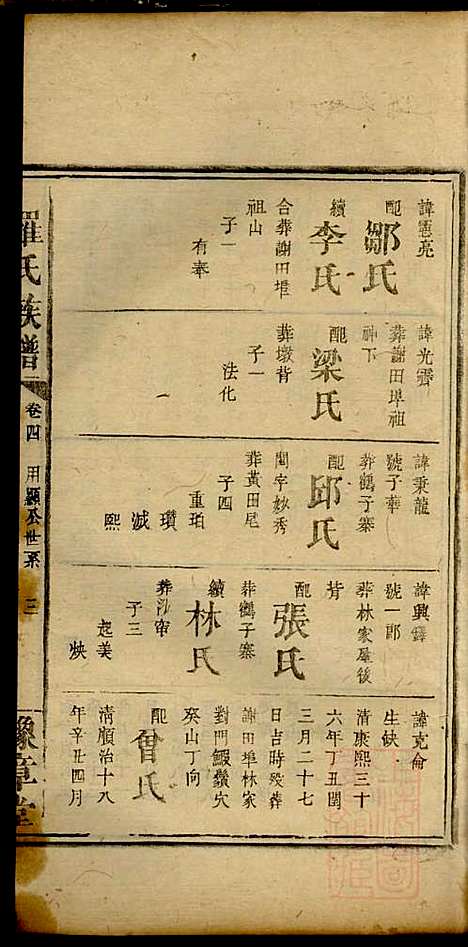 諱憲亮
配鄒氏
續李氏
合葬謝田埠
祖山
子一
有奉
諱光霽
葬謝田埠祖
神下
配梁氏
葬墩背
子一
法化
諱秉龍
號子華
葬鶴子寨
配邱氏
閨字妙秀
葬黃田尾
子四
重珀
瓚
瑊
熙
諱興鐸
號一郎
葬林家屋後
背
配張氏
葬鶴子寨
續林氏
子三
起美
諱克倫
生缺
清康熙三十
六年丁丑閏
三月二十七
日吉時歿葬
謝田埠林家
對門鰕鬚穴
癸山丁向
配曾氏
清順治十八
年辛丑四月
羅氏族譜
卷四
用顯公世系
三
豫章堂